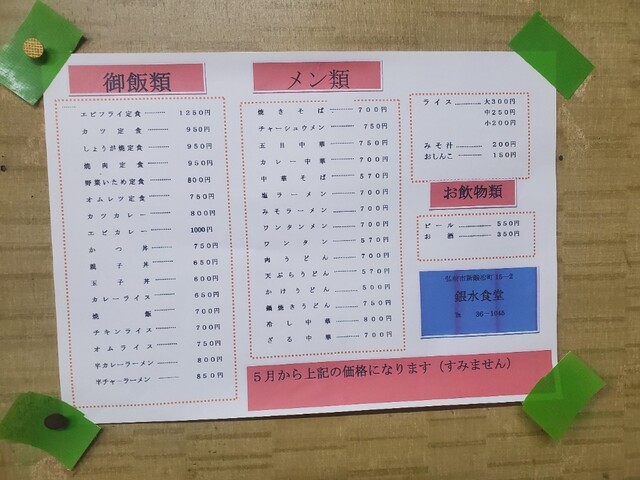 御飯類
エビフライ定食 ……… 1250円
カツ定食 ……… 950円
しょうが焼定食 ……… 950円
焼肉定食 ……… 950円
野菜いため定食 ……… 800円
オムレツ定食 ……… 750円
カツカレー ……… 800円
エビカレー ……… 1000円
かつ丼 ……… 750円
親子丼 ……… 650円
玉子丼 ……… 600円
カレーライス ……… 650円
焼飯 ……… 700円
チキンライス ……… 700円
オムライス ……… 750円
半カレーラーメン ……… 800円
半チャーラーメン ……… 850円
メン類
焼きそば ……… 700円
チャーシュウメン ……… 750円
五目中華 ……… 750円
カレー中華 ……… 700円
中華そば ……… 570円
塩ラーメン ……… 700円
みそラーメン ……… 700円
ワンタンメン ……… 700円
ワンタン ……… 570円
肉うどん ……… 700円
天ぷらうどん ……… 570円
かけうどん ……… 500円
鍋焼きうどん ……… 750円
冷し中華 ……… 800円
ざる中華 ……… 700円
ライス ……… 大300円
中250円
小200円
みそ汁 ……… 200円
おしんこ ……… 150円
お飲物類
ビール ……… 550円
お酒 ……… 350円
弘前市新鍛冶町15-2
銀水食堂
5月から上記の価格になります(すみません)